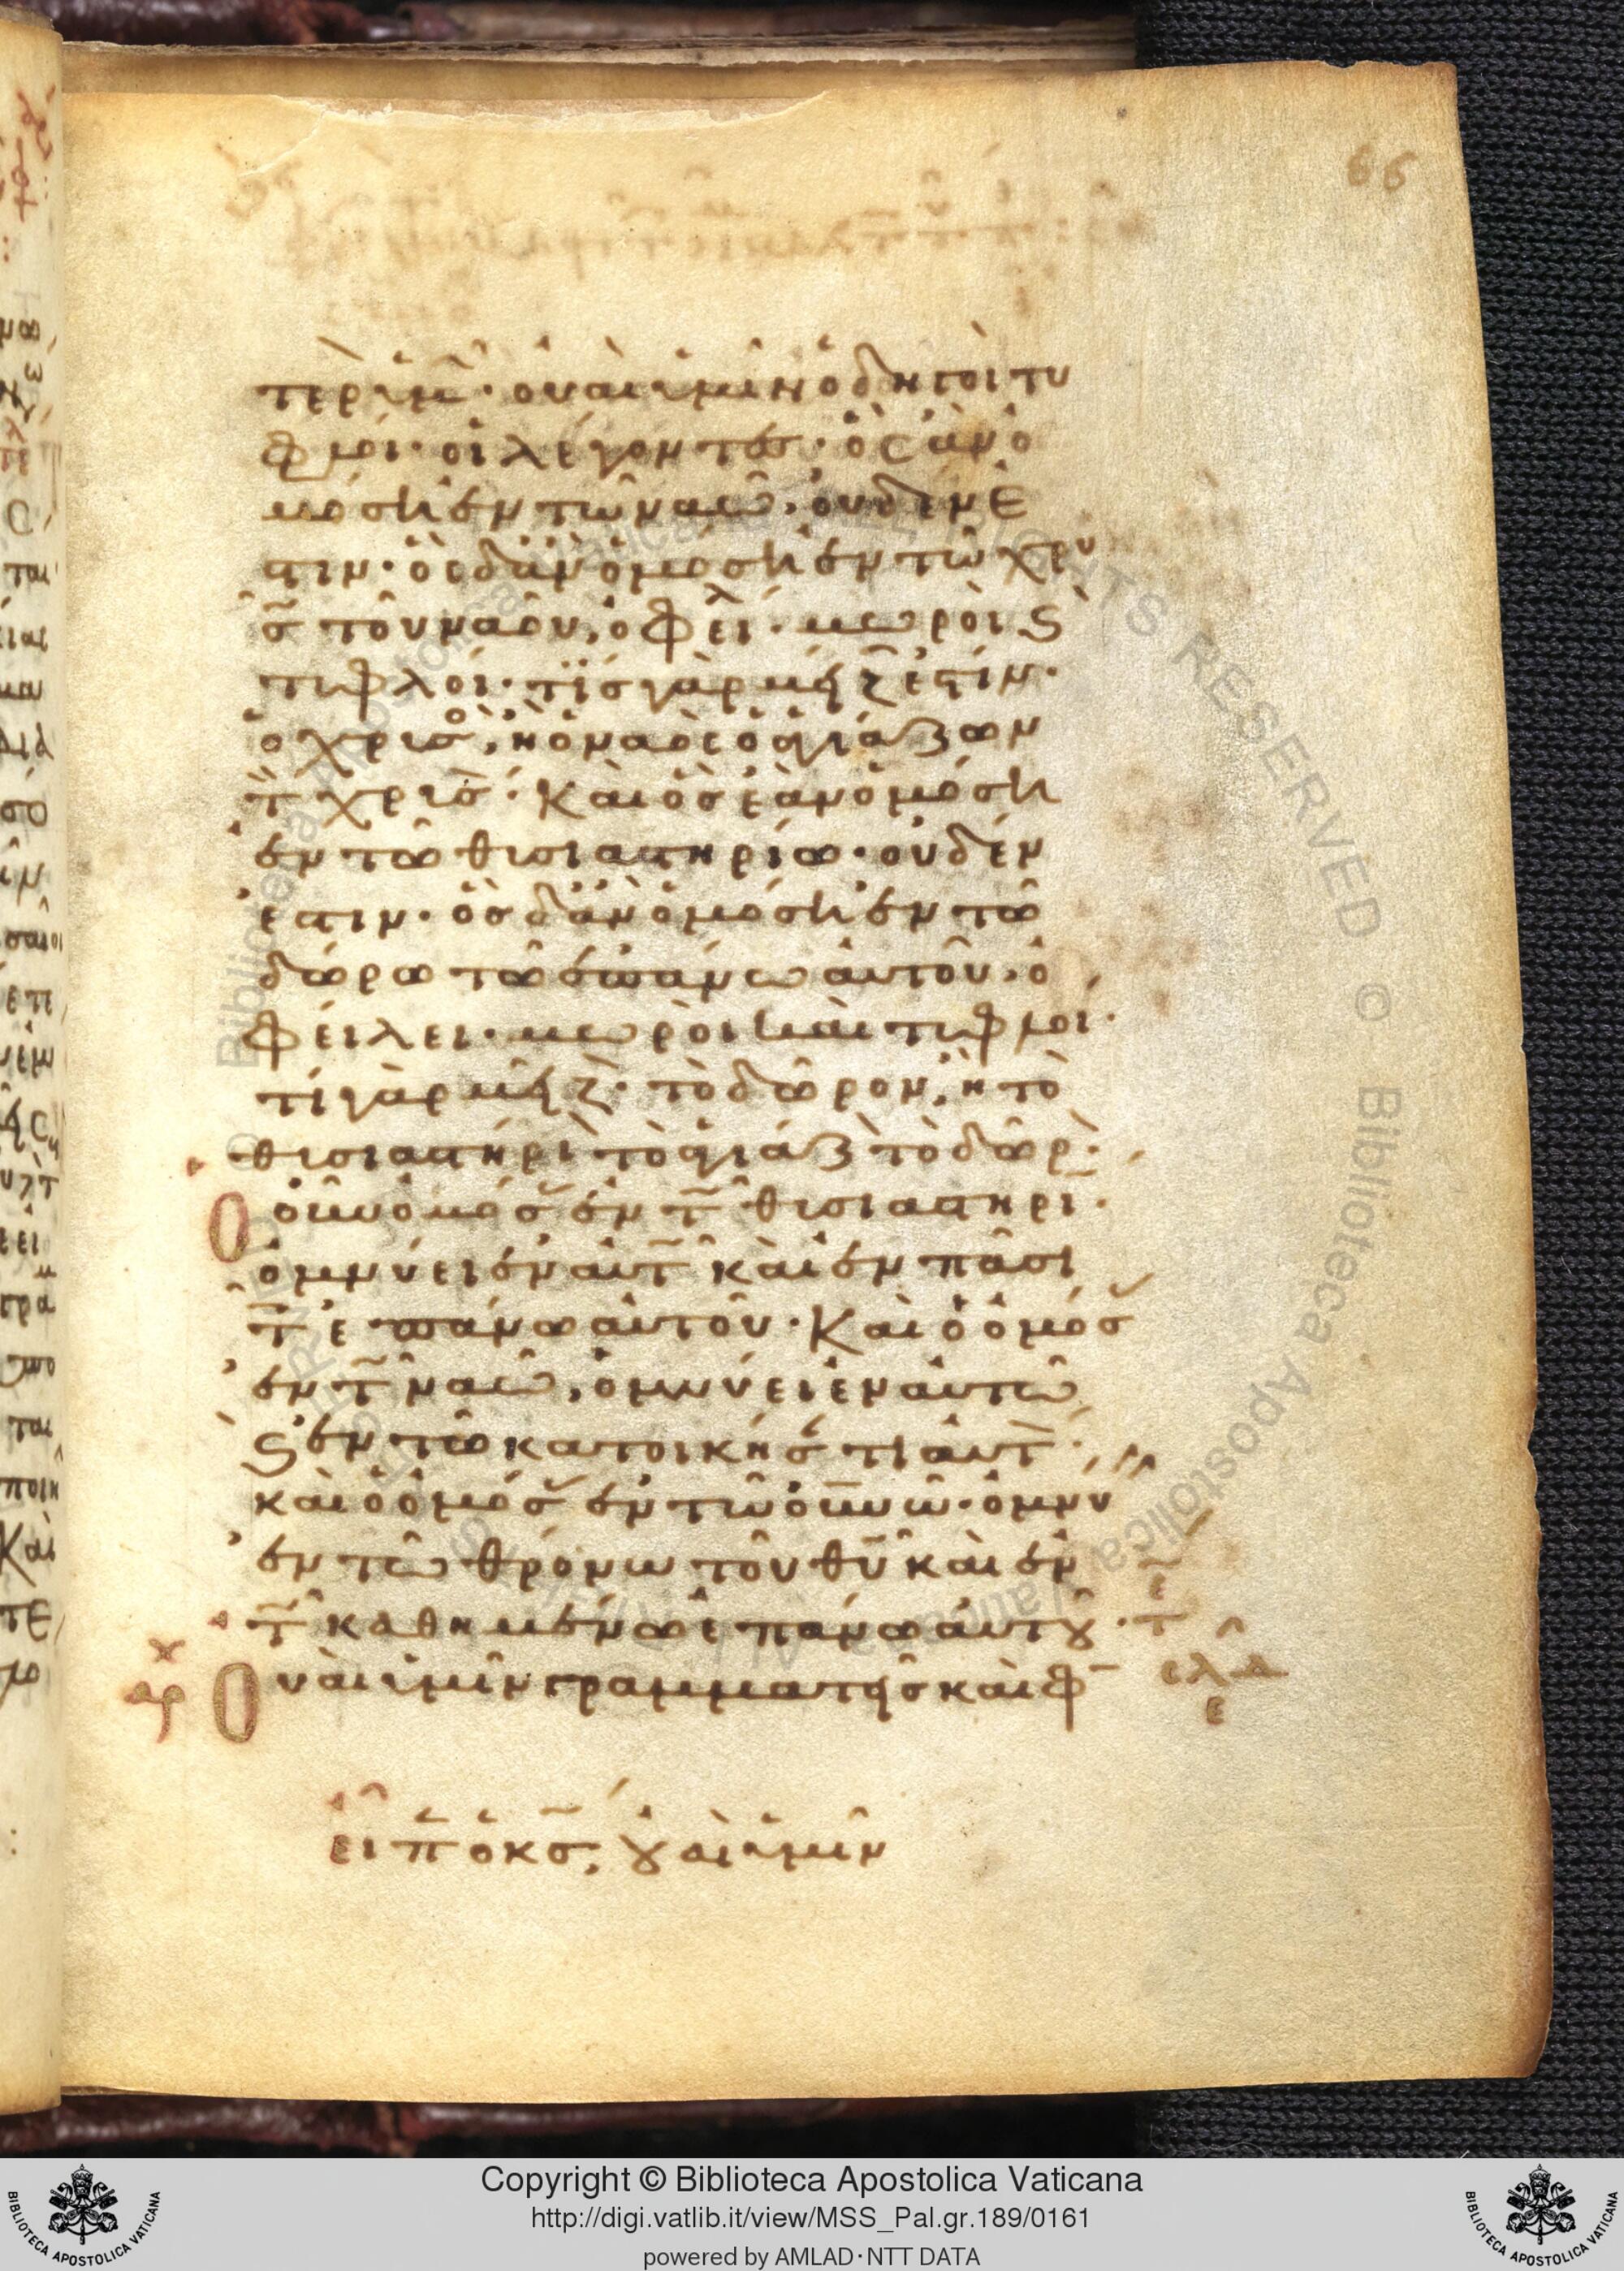 66
τερ ὑμῶ̅· οὐαὶ ὑμῖν ὁδηγοὶ τυ
φλοὶ· οἱ λέγοντες· ὃς ἂν ὀ
μόσῃ ἐν τῶ ναῶ, οὐδέν ἐ
στιν· ὃς δ' ἂν ὀμόσῃ ἐν τῶ χρυ
σῶ τοῦ ναοῦ, ὀφείλει· μωροὶ ϗ
τυφλοί· τίς γὰρ μείζ ἐστίν·
ὁ χρυσὸς, ἢ ὁ ναὸς ὁ ἁγιάζων
τ χρυσ· Καὶ ὃς ἐὰν ὀμόσῃ
ἐν τῶ θυσιαστηρίω· οὐδέν
ἐστιν· ὃς δ' ἂν ὀμόσῃ ἐν τῶ
δώρω τῶ ἐπάνω αὐτοῦ, ὀ
φείλει· μωροὶ καὶ τυφλοι·
τί γὰρ μεῖζ· τὸ δῶρον, ἢ τὸ
θυσιαστήρι τὸ ἁγιάζ τὸ δῶρ·
Ὁ οὖν ὀμόσ ἐν τ θυσιαστηρι·
ὀμνύει ἐν αὐτ καὶ ἐν πᾶσι
τ ἐπάνω αὐτοῦ· Καὶ ὁ ὀμόσ
ἐν τ ναῶ, ὀμνύει ἐν αὐτῶ
ϗ ἐν τῶ κατοικήσ τι αὐτ·
καὶ ὁ ὀμόσ ἐν τῶ οὐνω· ὀμνύ
ἐν τῶ θρόνω τοῦ θυ καὶ ἐν
τ καθημένω ἐπάνω αὐτοῦ· τ
Οὐαὶ ὑμῖν γραμματεῖς καὶ φ
εἶπ ὁ κσ, οὐαὶ ὑμῖν
Copyright © Biblioteca Apostolica Vaticana
http://digi.vatlib.it/view/MSS_Pal.gr.189/0161
powered by AMLAD·NTT DATA